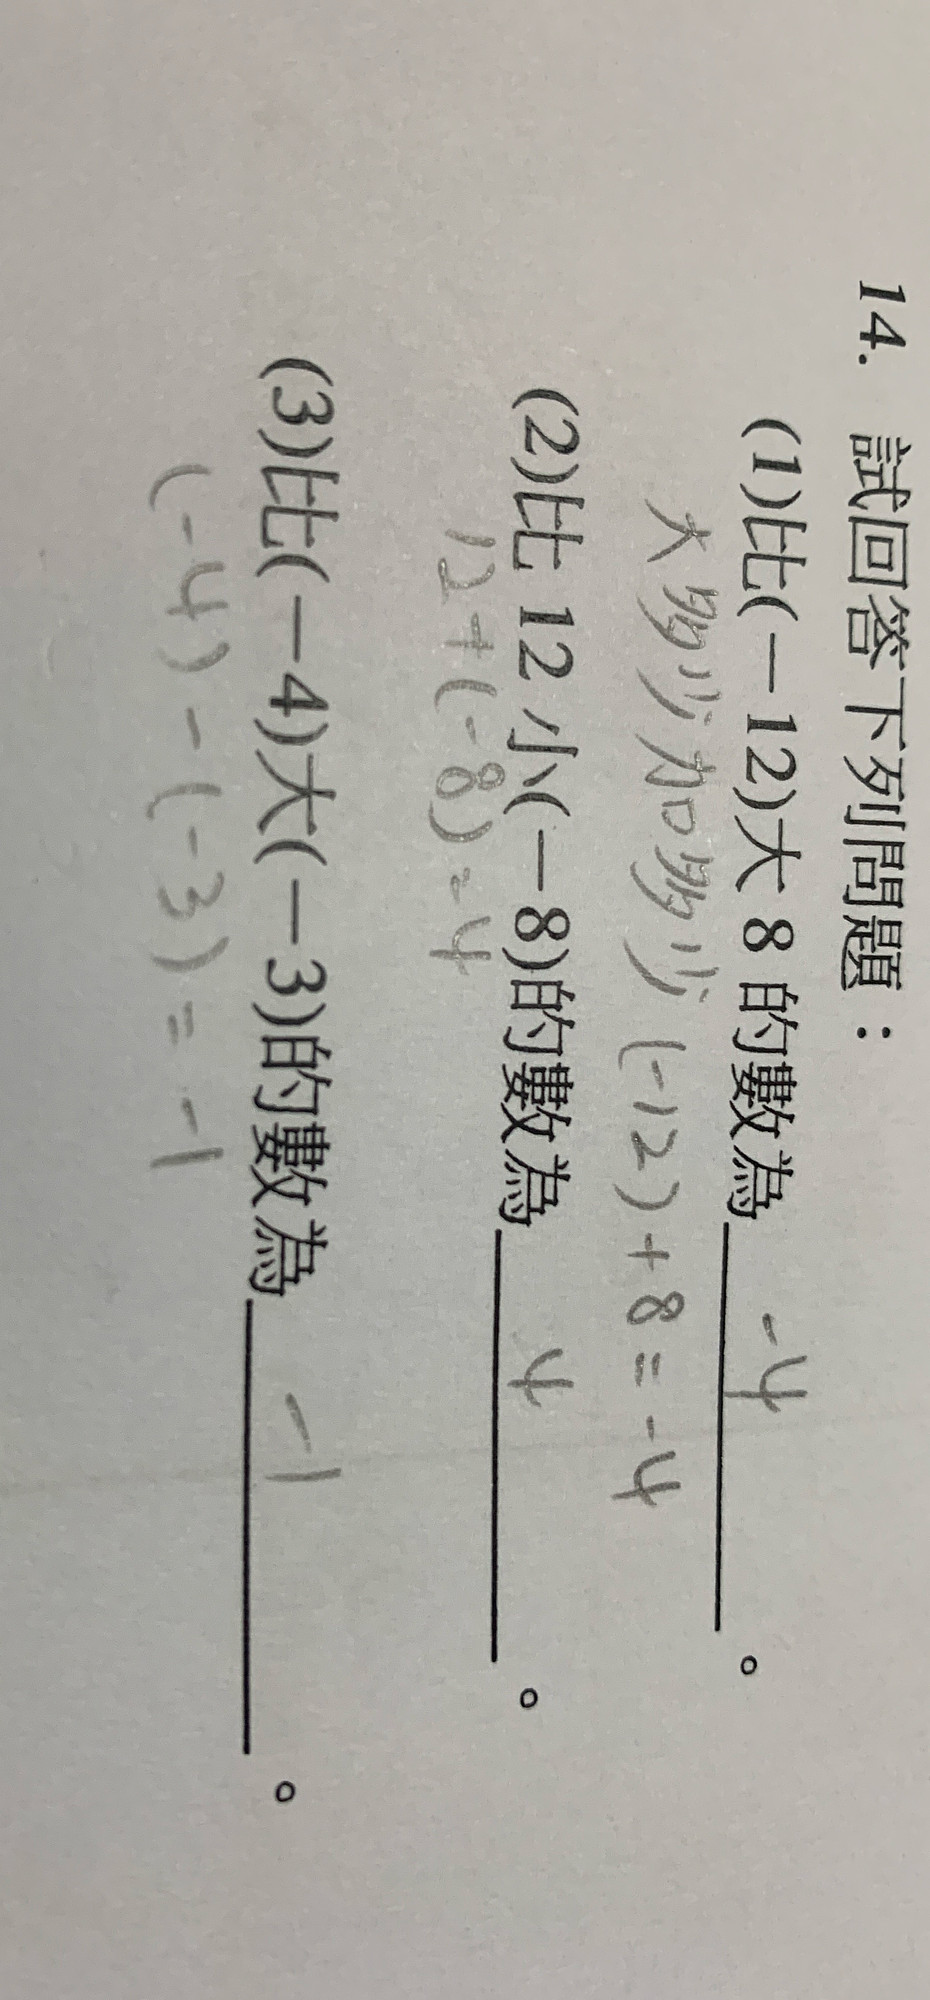 14. 試回答下列問題：
(1)比(－12)大 8 的數為 -4 。
大多少加多少 (-12)+8=-4
(2)比 12 小(－8)的數為 4 。
12+(-8)=4
(3)比(－4)大(－3)的數為 -1 。
(-4)-(-3)=-1